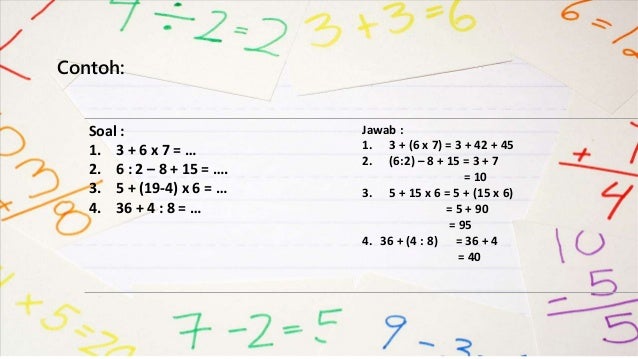 4 ÷ 2 = 2
3 + 3 = 6
Contoh:
Soal :
1. 3 + 6 x 7 = ...
2. 6 : 2 – 8 + 15 = ....
3. 5 + (19-4) x 6 = ...
4. 36 + 4 : 8 = ...
Jawab :
1. 3 + (6 x 7) = 3 + 42 + 45
2. (6:2) – 8 + 15 = 3 + 7
= 10
3. 5 + 15 x 6 = 5 + (15 x 6)
= 5 + 90
= 95
4. 36 + (4 : 8) = 36 + 4
= 40
10
= 5
5
7 - 2 = 5